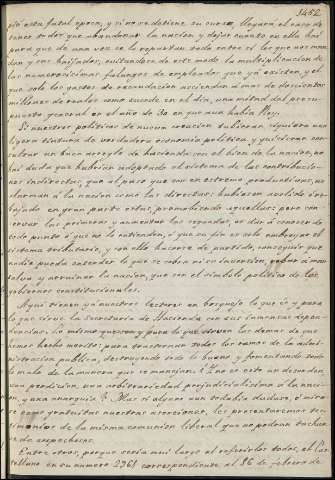 3452
pio esta fatal epoca, y si no se detiene su curso, llegará el caso de
tener todos que abandonar la nacion y dejar cuanto en ella hay
para que de una vez se lo repartan todo entre sí los que nos man-
dan y sus bajalies, evitandose de este modo la multiplicacion de
las numerosisimas falanges de empleados que ya existen, y el
que solo los gastos de recaudacion asciendan á mas de doscientos
millones de reales como sucede en el dia, una mitad del presu-
puesto general en el año de 30 en que nada había Rey.
Si nuestros politicos de nueva creacion tubieran siquiera una
ligera tintura de verdadera economía política y quisieran con-
sultar un buen arreglo de hacienda con el bien de la nacion, no
hay duda que hubieran adoptado el sistema de las contribucio-
nes indirectas, que al paso que son en estremo productivas, no
alarman á la nacion como las directas; hubieran rebajado
en gran parte estas, promoviendo aquellas: pero con-
servar las primeras y aumentar las segundas, es dar á conocer de
todo punto ó que no lo entienden, ó que su fin es solo embrollar el
sistema tributario, y con ello hacerse de partido, conseguir que
nadie pueda entender lo que se cobra ni su inversion, robar á man-
salva y arruinar la nacion, que son el símbolo político de los
gobiernos constitucionales.
Aqui tienen ya nuestros lectores en bosquejo lo que es y para
lo que sirve la Secretaría de Hacienda con sus inmensas depen-
dencias. Lo mismo que son y para lo que sirven las demas de que
hemos hecho merito; para trastornar todos los ramos de la admi-
nistracion publica, destruyendo todo lo bueno y fomentando todo
lo malo de la manera que se manejan. ¿No es esto un desorden
una perdicion, una arbitrariedad perjudicialisima á la nacion
y una anarquía? Mas si alguno aun todabía dudase, ó mirase
como gratuitas nuestras aserciones, les presentaremos tes-
timonios de la misma comunion liberal que no podran tachar
se de sospechosos.
Entre otros, porque seria muy largo el referirlos todos, el Cas-
tellano en su numero 2361 correspondiente al 26 de febrero de